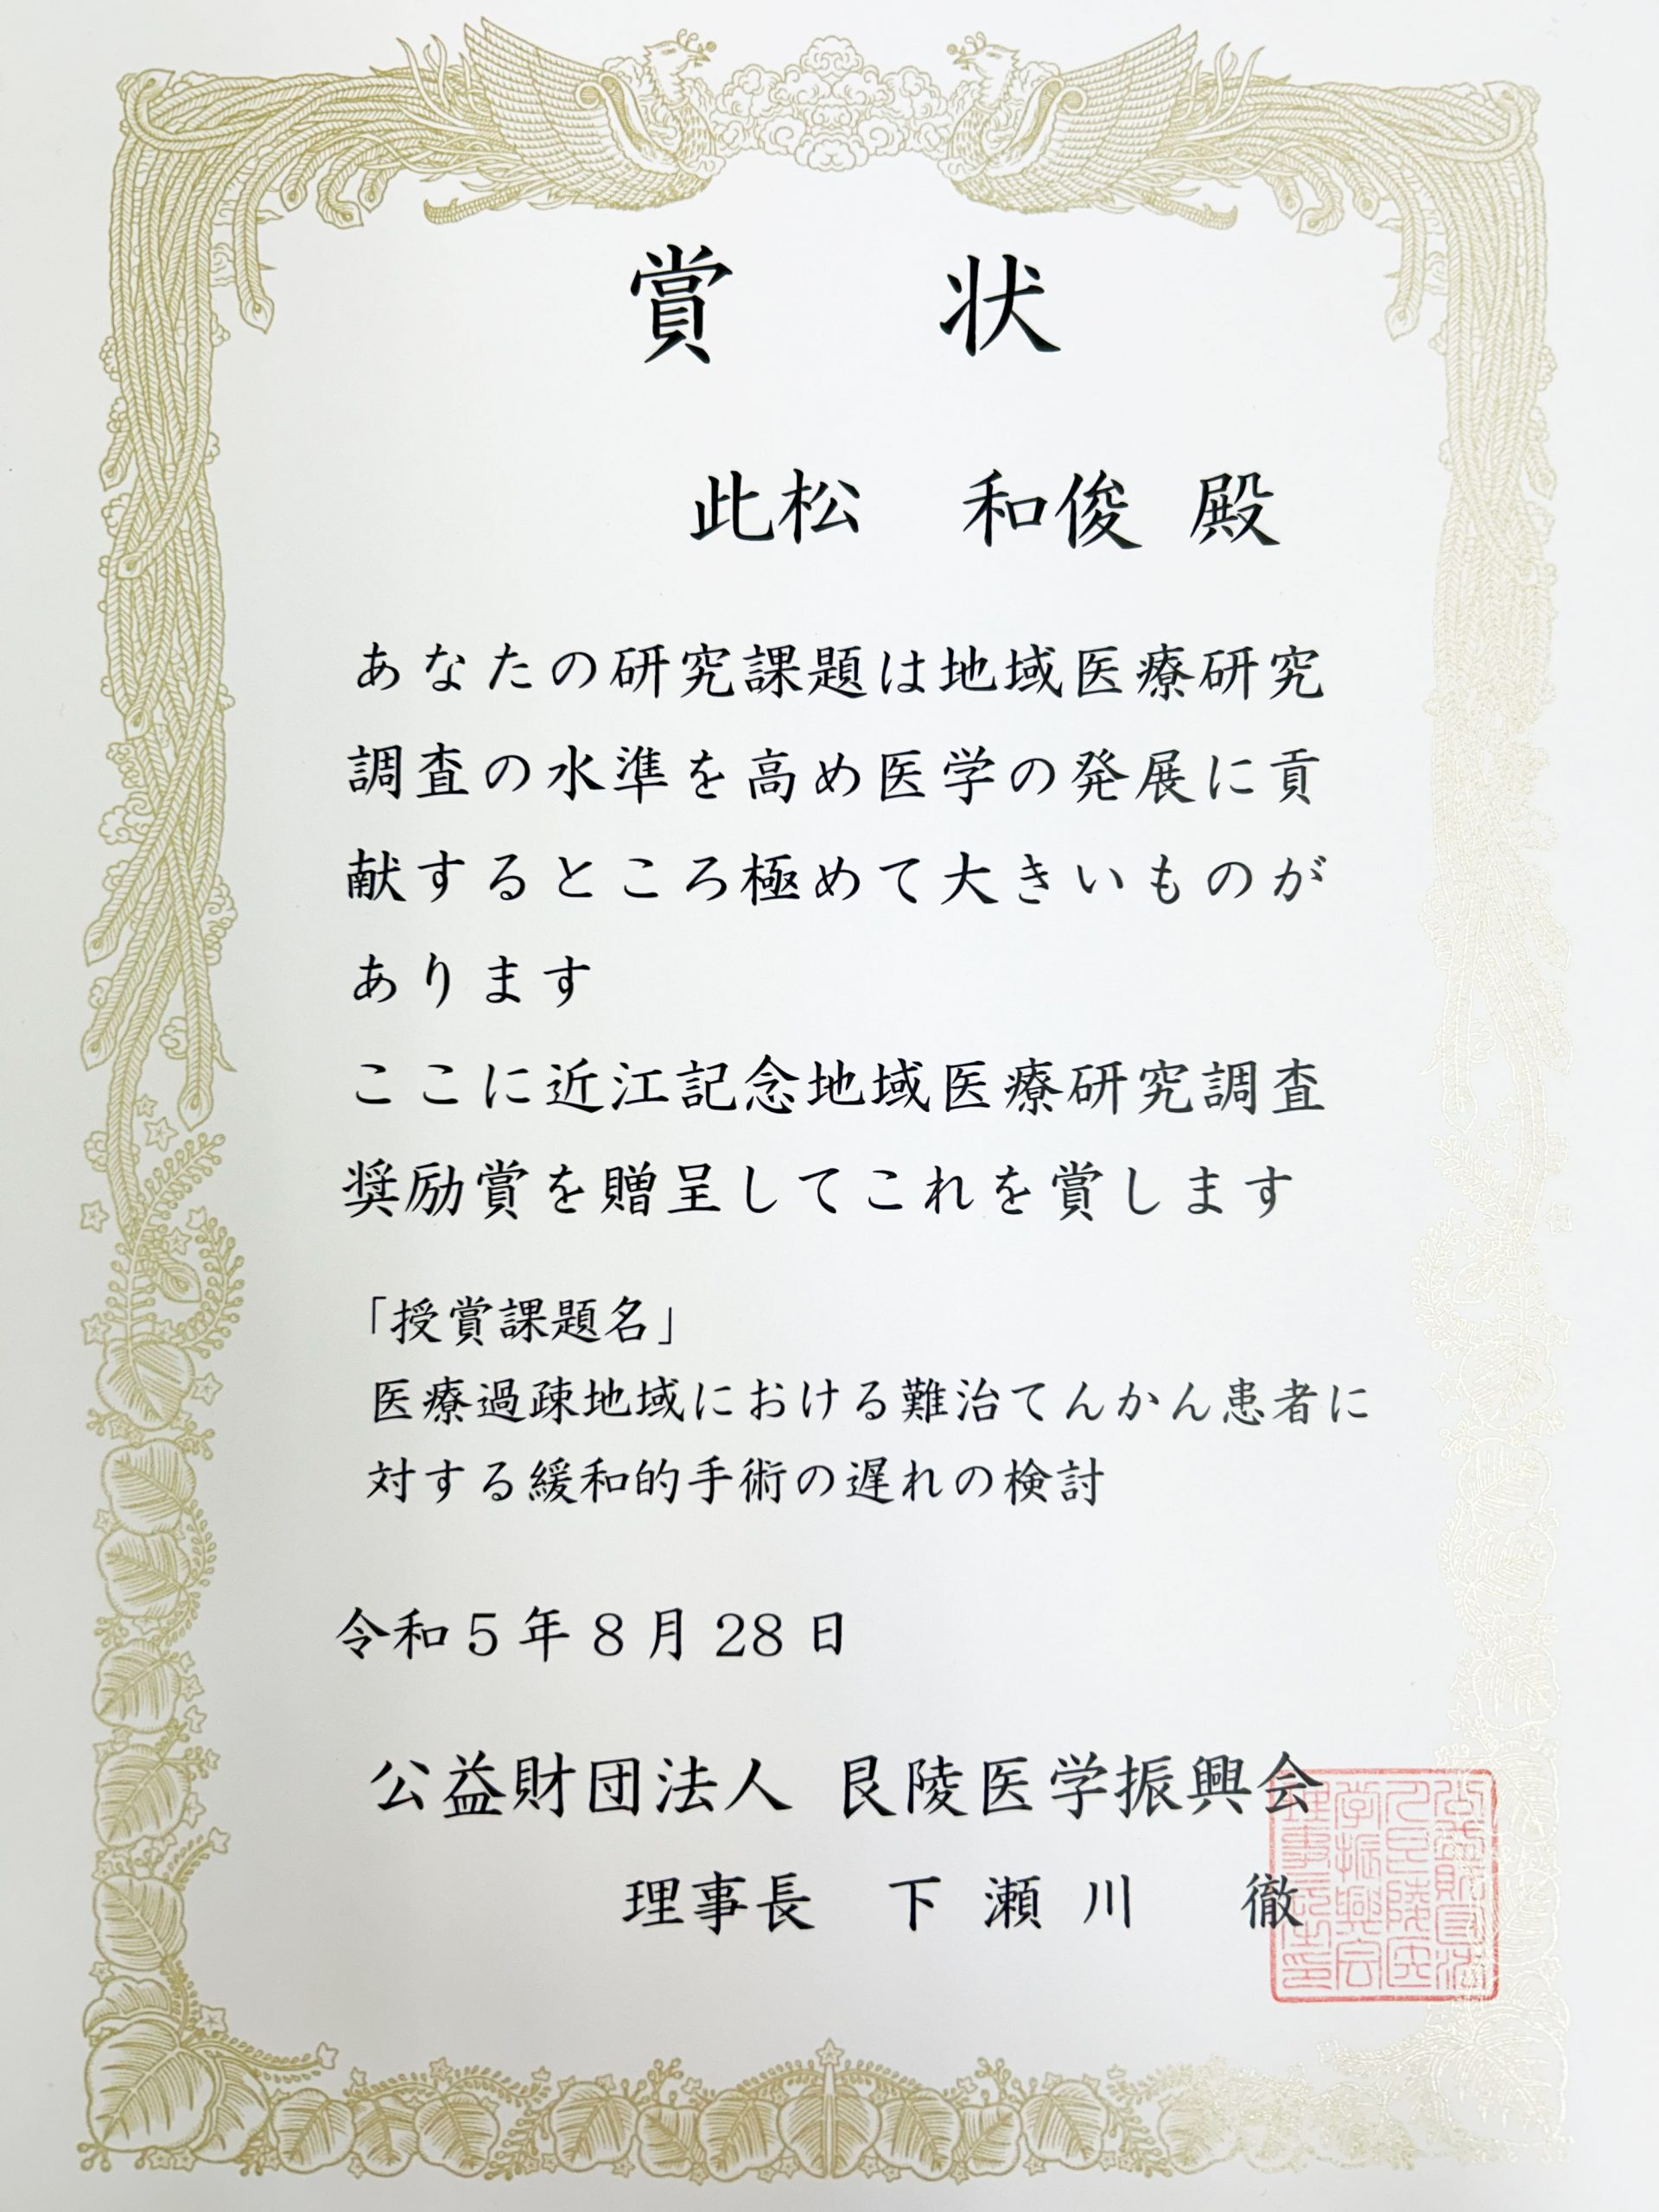 賞状
此松 和俊 殿
あなたの研究課題は地域医療研究
調査の水準を高め医学の発展に貢
献するところ極めて大きいものが
あります
ここに近江記念地域医療研究調査
奨励賞を贈呈してこれを賞します
「授賞課題名」
医療過疎地域における難治てんかん患者に
対する緩和的手術の遅れの検討
令和5年8月28日
公益財団法人 艮陵医学振興会
理事長 下瀬川 徹